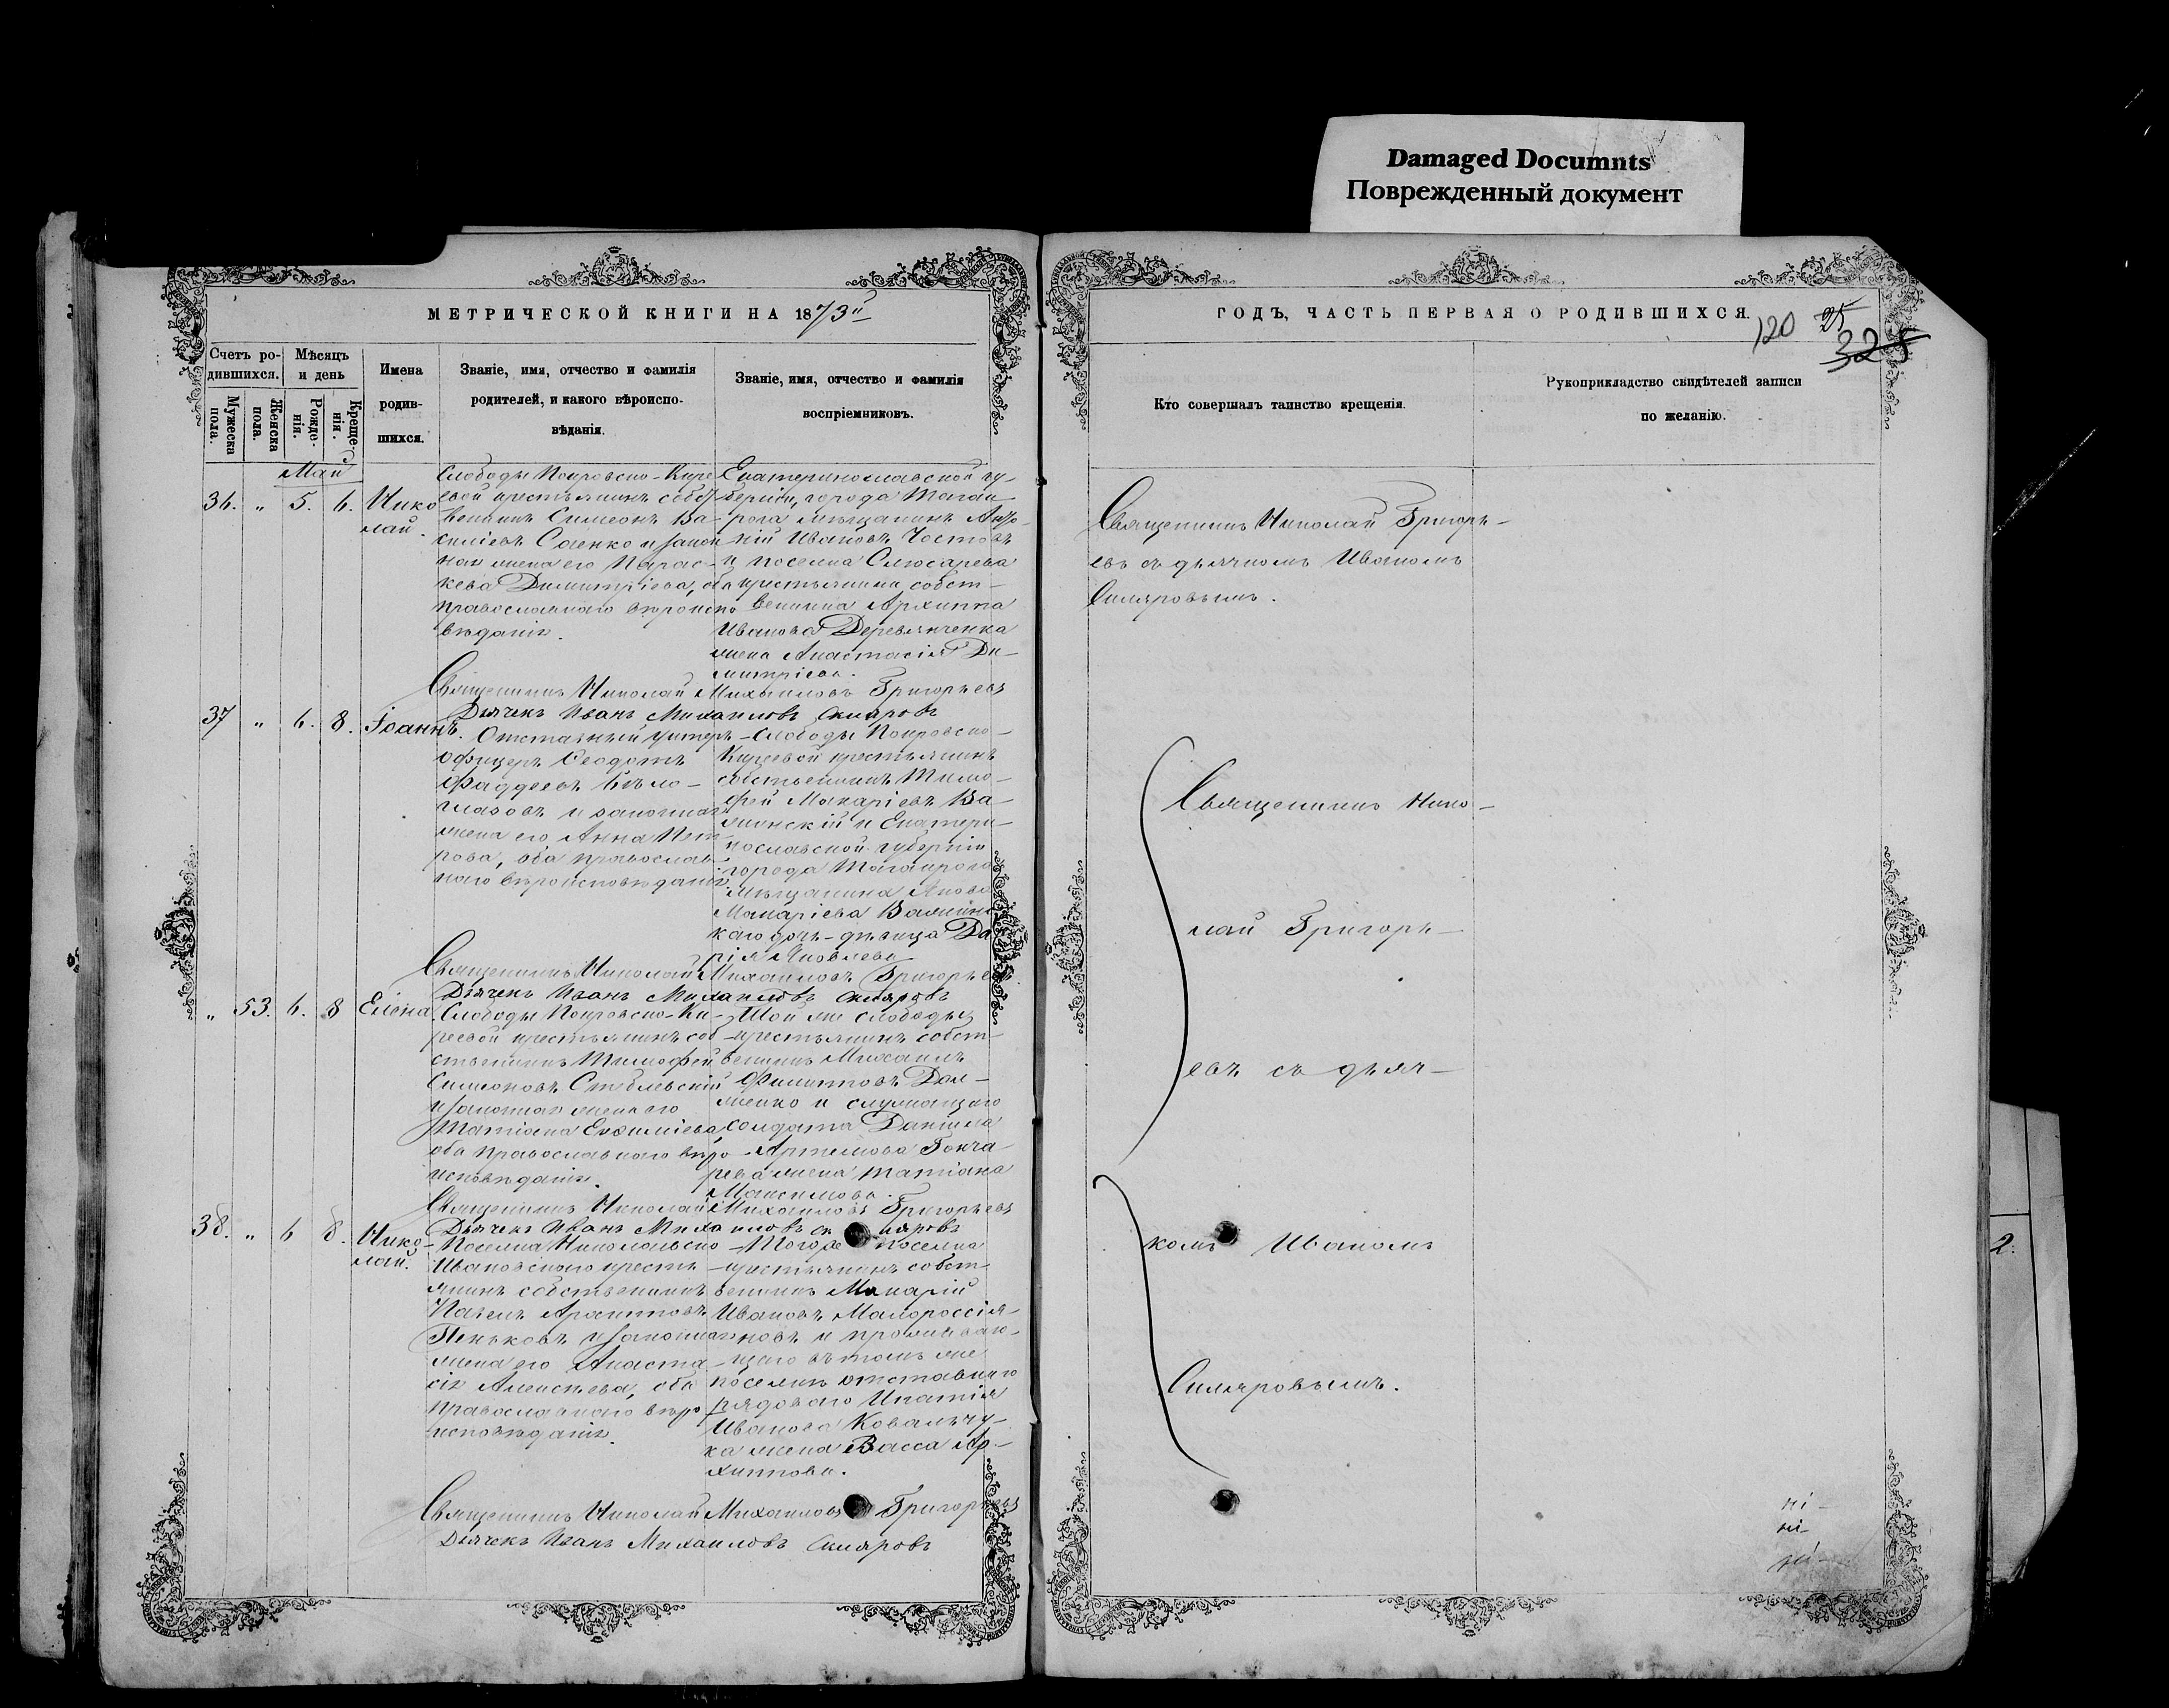 Damaged Documnts
Поврежденный документ
МЕТРИЧЕСКОЙ КНИГИ НА 1873й
ГОДЪ, ЧАСТЬ ПЕРВАЯ О РОДИВШИХСЯ.
120 25
325
Счетъ ро-
дившихся.
Мужеска пола.
Женска пола.
Мѣсяцъ
и день
Рожде-
нія.
Креще-
нія.
Имена
родив-
шихся.
Званіе, имя, отчество и фамилія
родителей, и какого вѣроиспо-
вѣданія.
Званіе, имя, отчество и фамилія
воспріемниковъ.
Кто совершалъ таинство крещенія.
Рукоприкладство свидѣтелей записи
по желанію.
Май
36. „ 5. 6. Нико
лай.
Слободы Покровско-Кире
евой крестьянинъ собст
венникъ Симеонъ Ва-
силіевъ Саенко и закон
ная жена его Парас-
кева Димитріева, оба
православнаго вѣроиспо
вѣданія.
Екатеринославской гу-
берніи, города Таган-
рога мѣщанинъ
Ивановъ
и поселка Слюсарева
крестьянина собст-
венника Архиппа
Иванова Деревянченка
жена Анастасія Ди-
митріева.
Священникъ Николай Григорь-
евъ съ дьячкомъ Иваномъ
Скляровымъ.
Священникъ Николай Михаиловъ Григорьевъ
Дьячекъ Иванъ Михаиловъ Скляровъ
37 „ 6. 8. Іоаннъ.
Отставный унтеръ-
офицеръ Ѳеодотъ
Фаддеевъ Бѣло-
глазовъ и законная
жена его Анна Пет-
рова, оба православ-
наго вѣроисповѣданія.
Слободы Покровско-
Киреевой крестьянинъ
собственникъ Тимо-
фей Макаріевъ Ва-
и Екатери-
нославской губерніи
города Таганрога
мѣщанина Якова
Макаріева
каго дочь-дѣвица Да
рія Яковлева
Священникъ Николай Михаиловъ Григорьевъ
Дьячекъ Иванъ Михаиловъ Скляровъ
„ 53. 6. 8 Елена
Слободы Покровско-Ки-
реевой крестьянинъ соб-
ственникъ Тимофей
Симеоновъ Стеблевскій
и законная жена его
Татіана Евѳиміева
оба православнаго вѣро-
исповѣданія.
Той же слободы
крестьянинъ собст-
венникъ Михаилъ
Филипповъ Дол-
женко и служащаго
солдата Даніила
Артемова Гонча-
рева жена Татіана
Максимова.
Священникъ Николай Михаиловъ Григорьевъ
Дьячекъ Иванъ Михаиловъ Скляровъ
38. „ 6 8. Нико-
лай.
Поселка Николаевско-
Ивановскаго кресть-
янинъ собственникъ
Павелъ Архипповъ
Пеньковъ и законная
жена его Анаста-
сія Алексѣева, оба
православнаго вѣро-
исповѣданія.
Тогоже поселка
крестьянинъ собст-
венникъ Макарій
Ивановъ Малороссія-
новъ и проживаю-
щаго въ томъ же
поселкѣ отставнаго
рядоваго Ипатія
Иванова Ковальчу-
ка жена Васса Ар-
хиппова.
Священникъ Николай Михаиловъ Григорьевъ
Дьячекъ Иванъ Михаиловъ Скляровъ
Священникъ Нико-
лай Григорь-
евъ съ дьяч-
комъ Иваномъ
Скляровымъ.
2.